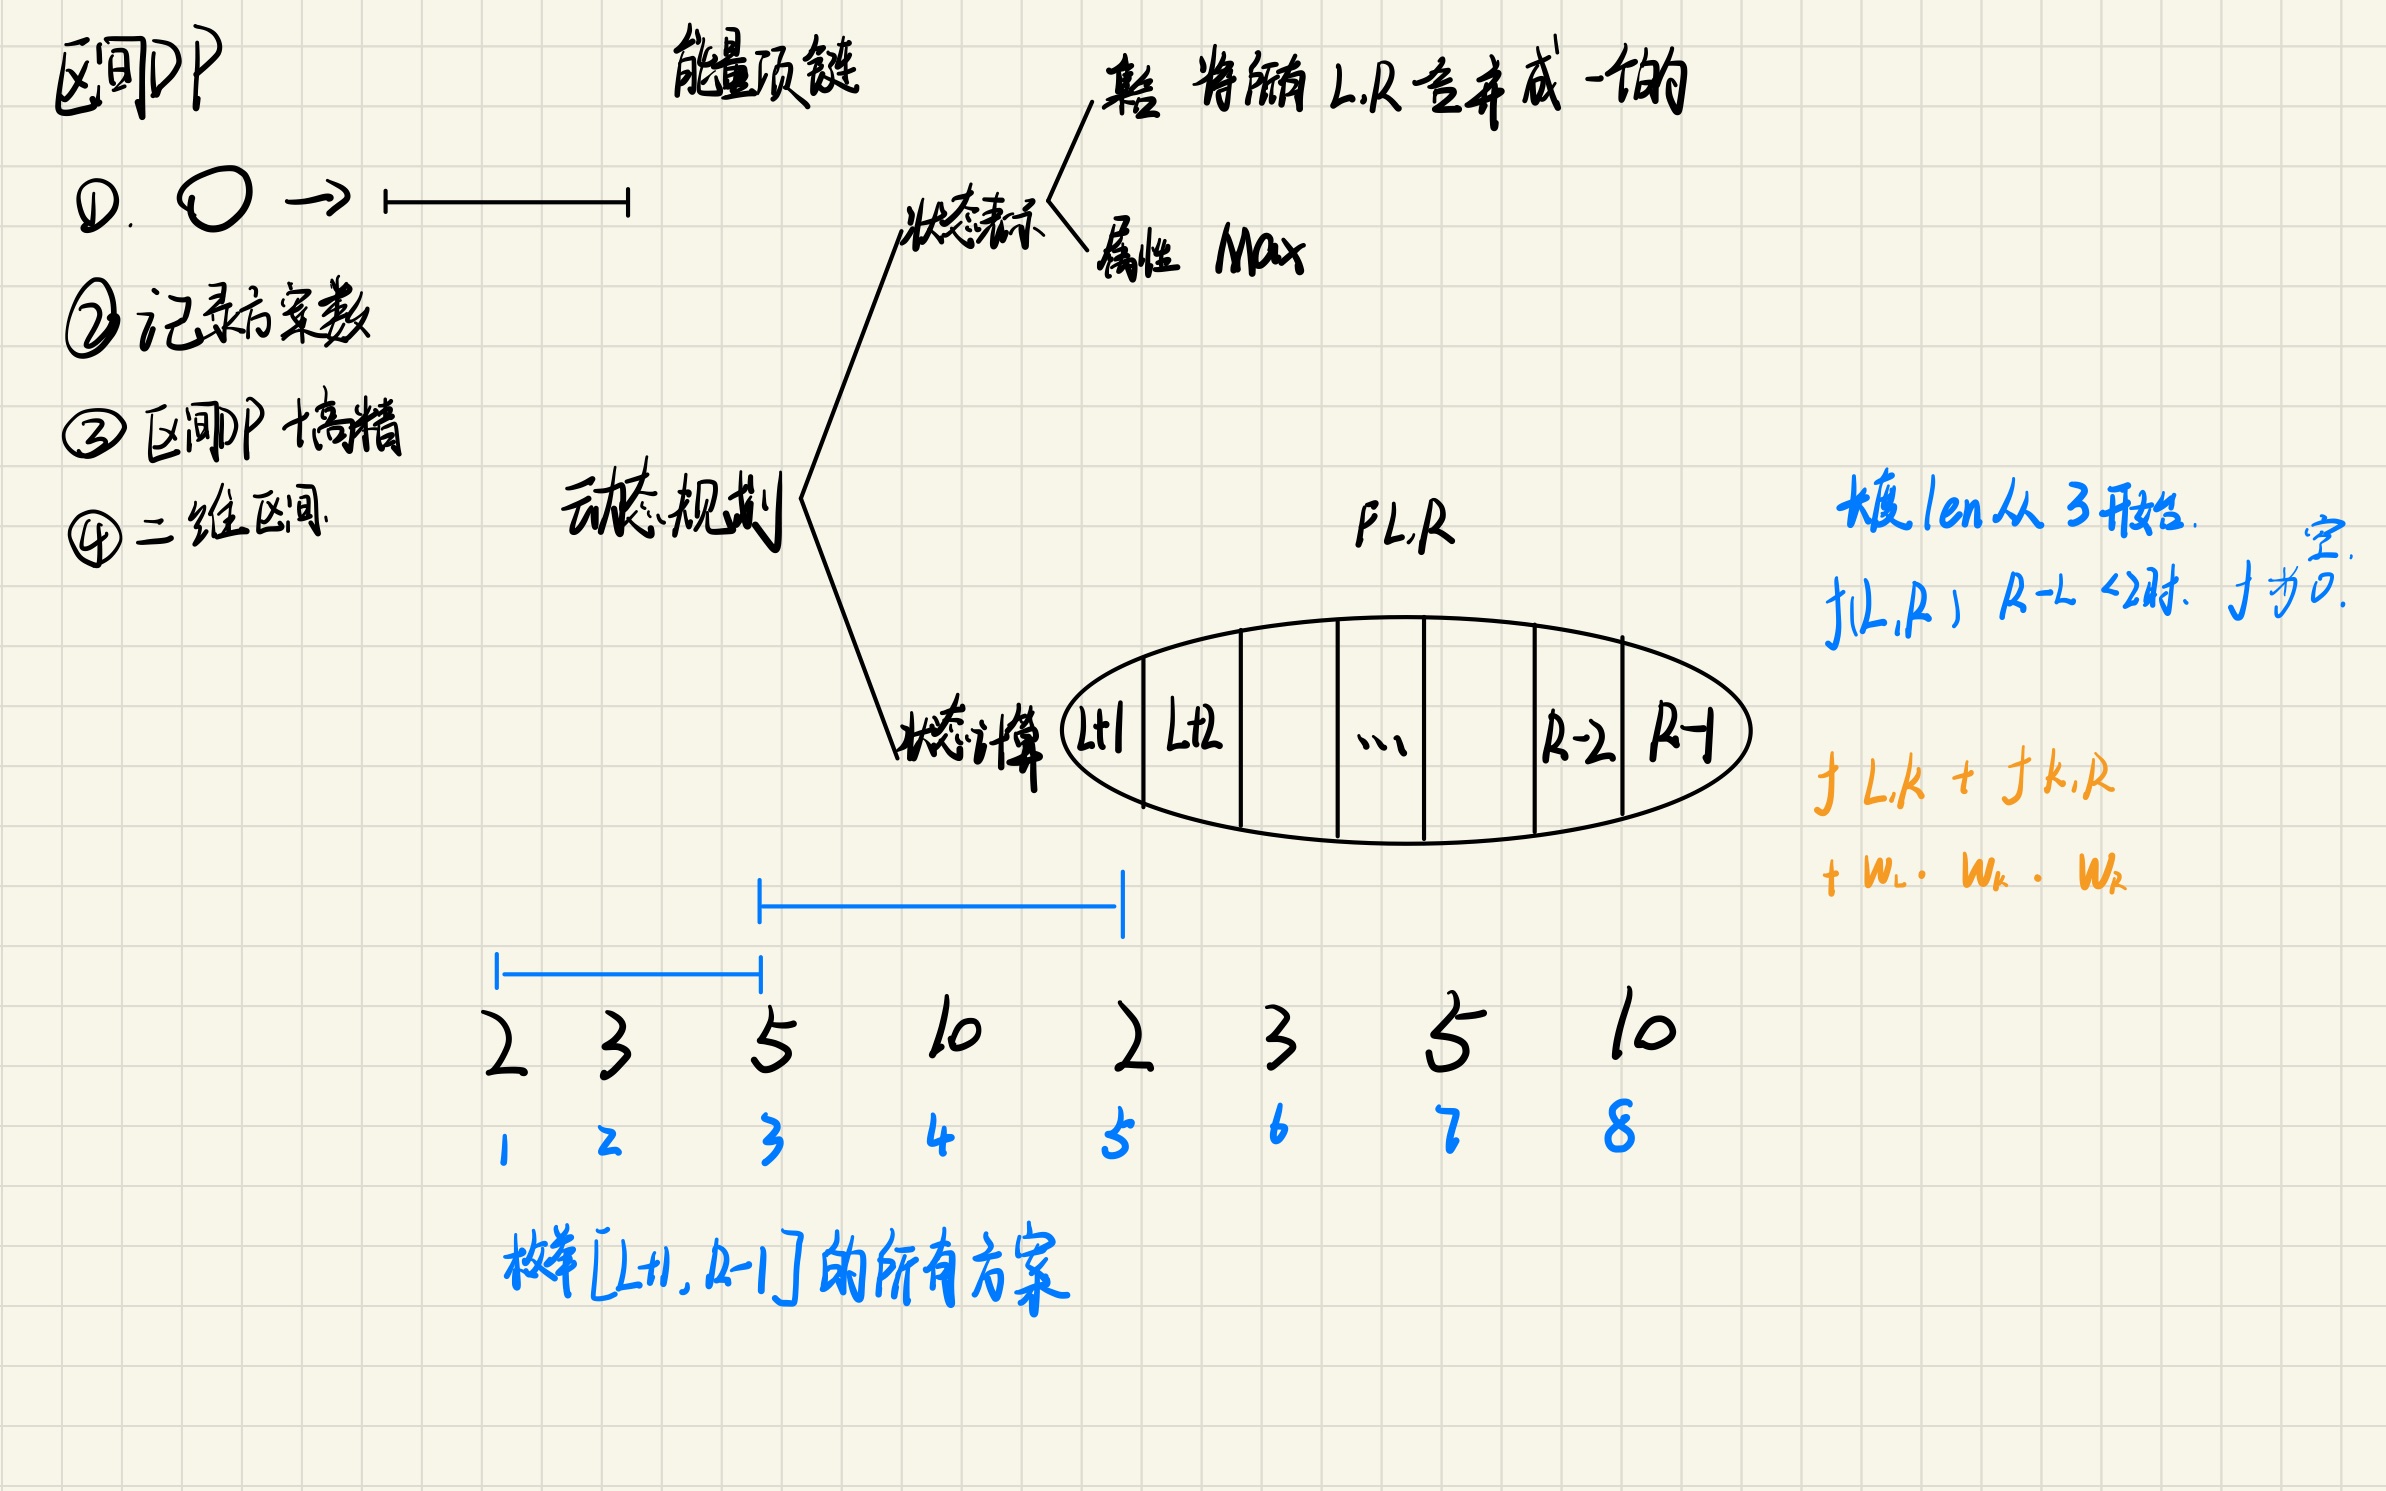 区间DP
能量项链
①.
→
②记录方案数
③区间DP+高精
④二维区间.
动态规划
状态表示
集合 将所有 L,R 合并成一个的
属性 Max
状态计算
f L,R
L+1 L+2 ... R-2 R-1
长度 len 从 3 开始.
f(L,R) R-L<2时. f为空.
f L,k + f k,R
+ W L · W k · W R
2 3 5 10 2 3 5 10
1 2 3 4 5 6 7 8
枚举[L+1, R-1]的所有方案